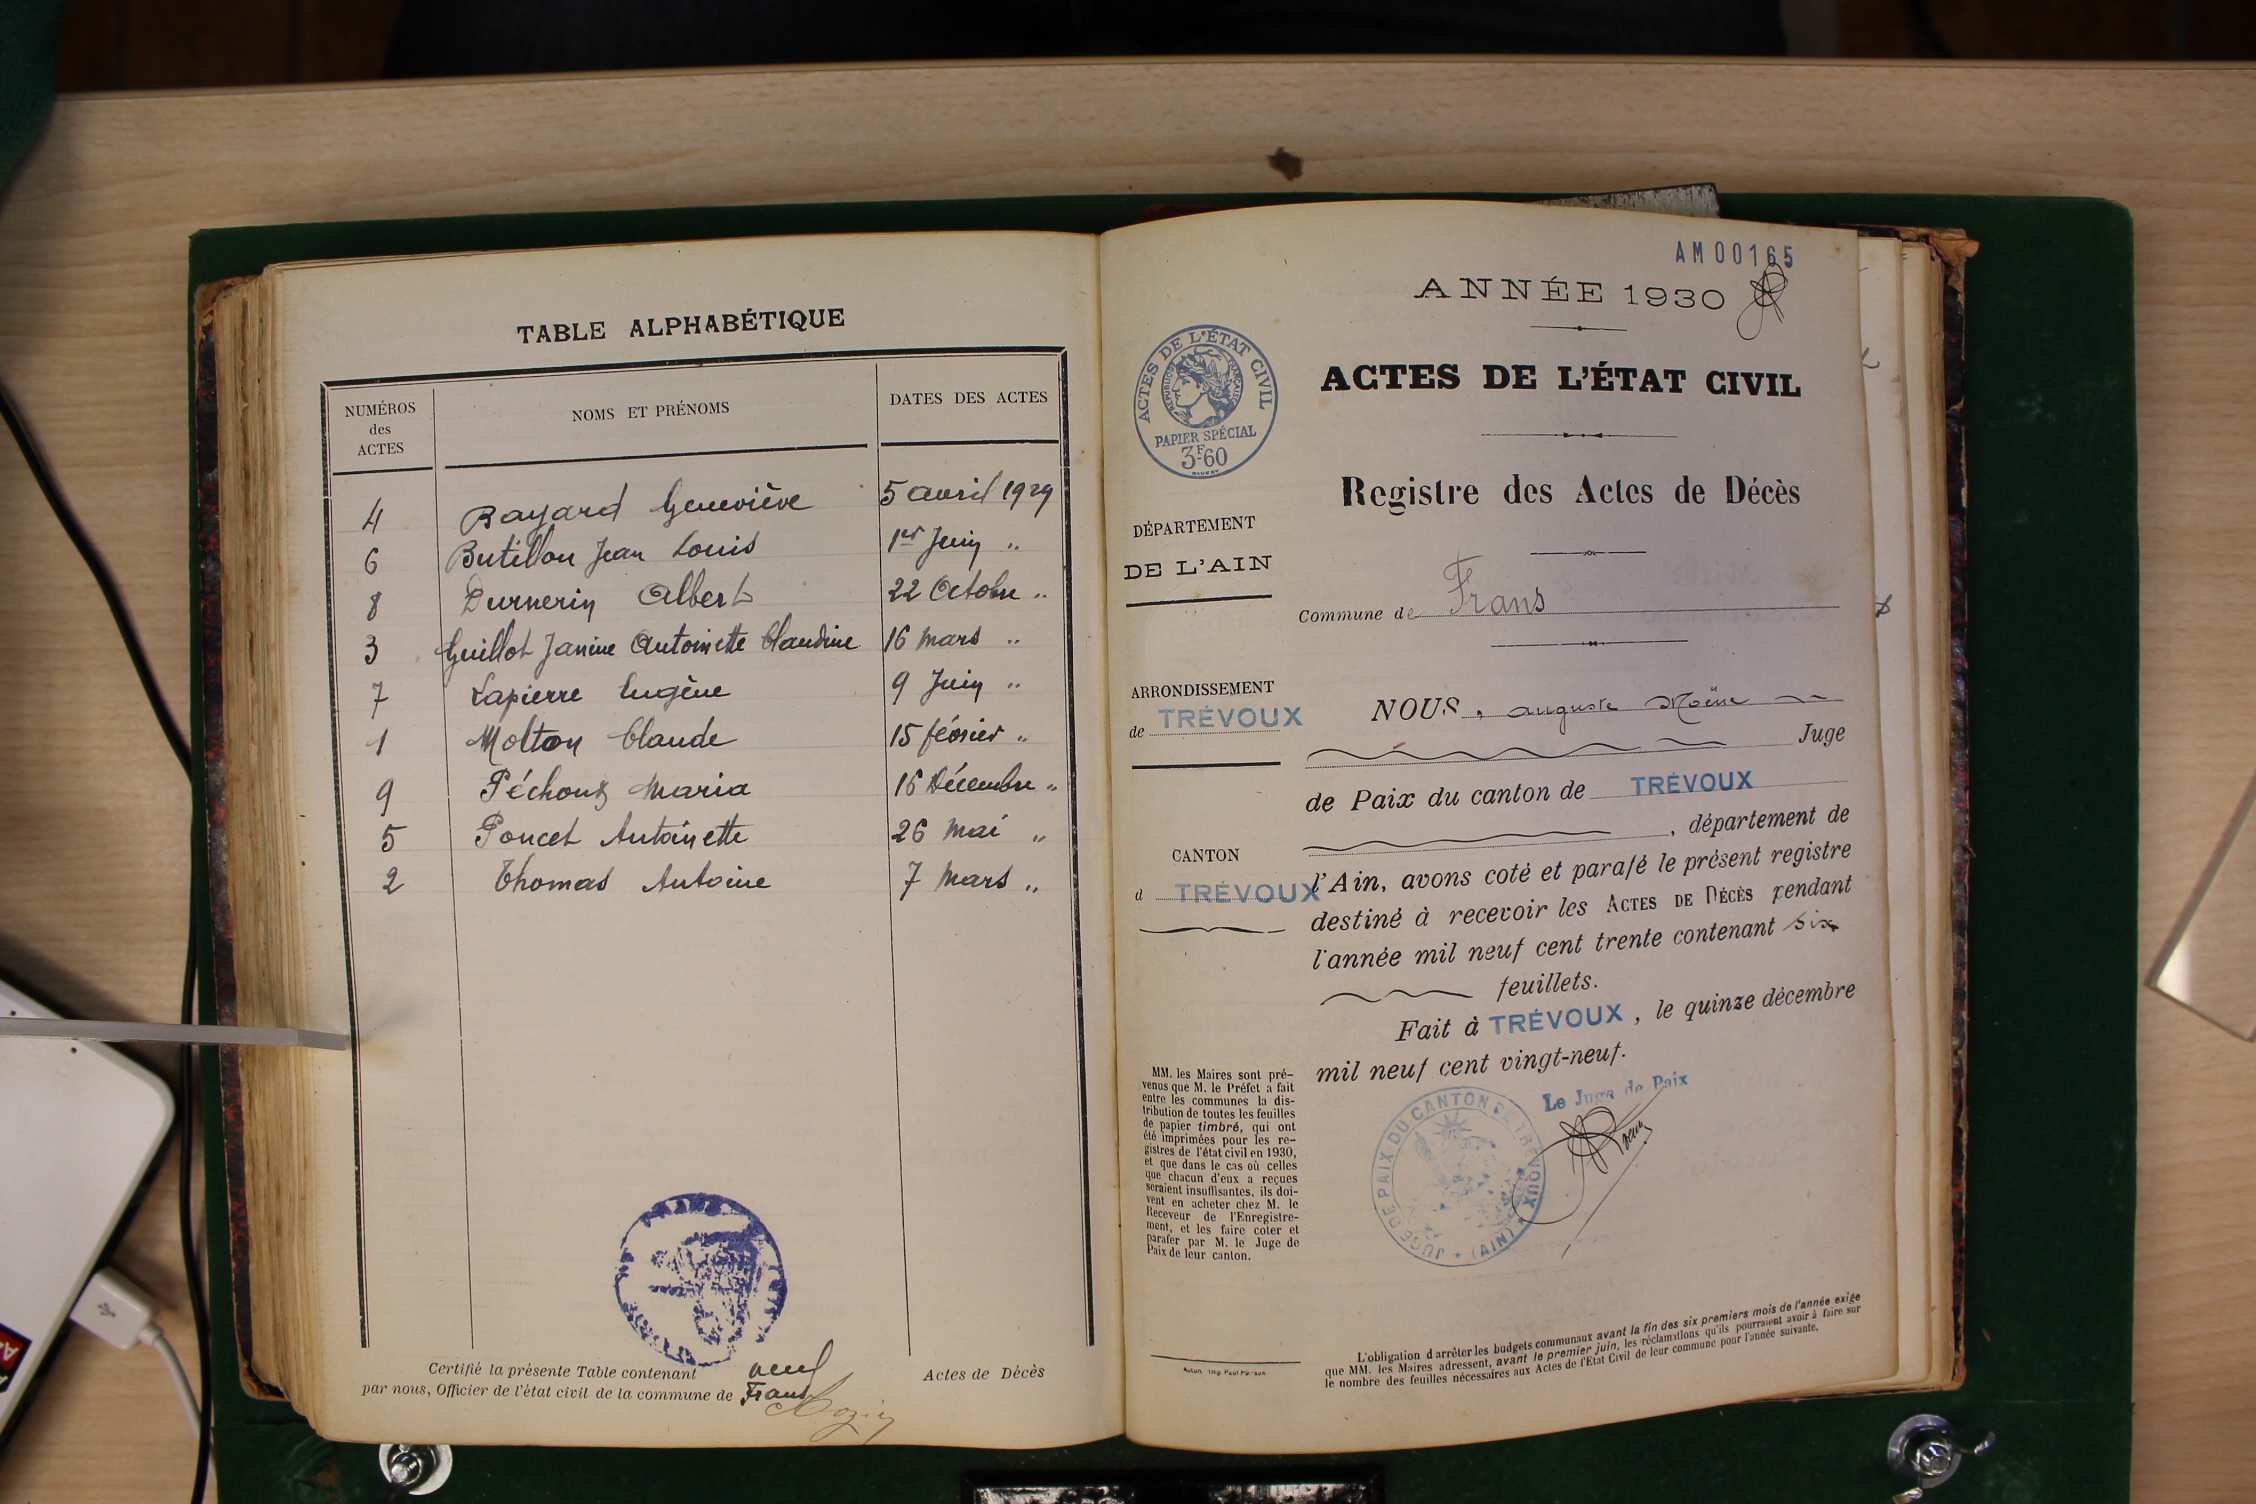 TABLE ALPHABÉTIQUE
NUMÉROS des ACTES NOMS ET PRÉNOMS DATES DES ACTES
4 Bayard Geneviève 5 avril 1929
6 Butillon Jean Louis 1er Juin "
8 Durnerin Albert 22 Octobre "
3 Guillot Janine Antoinette Claudine 16 Mars "
7 Lapierre Eugène 9 Juin "
1 Molton Claude 15 février "
9 Péchoux Maria 16 Décembre "
5 Poncet Antoinette 26 Mai "
2 Thomas Antoine 7 Mars "
Certifié la présente Table contenant neuf Actes de Décès
par nous, Officier de l'état civil de la commune de Frans
AM00165
ANNÉE 1930
ACTES DE L'ÉTAT CIVIL
Registre des Actes de Décès
Commune de Frans
NOUS, auguste Moëne
Juge
de Paix du canton de TRÉVOUX
, département de
l'Ain, avons coté et parafé le présent registre
destiné à recevoir les ACTES DE DÉCÈS pendant
l'année mil neuf cent trente contenant six
feuillets.
Fait à TRÉVOUX, le quinze décembre
mil neuf cent vingt-neuf.
Le Juge de Paix
JUGE DE PAIX DU CANTON DE TRÉVOUX (AIN)
ACTES DE L'ÉTAT CIVIL
RÉPUBLIQUE FRANÇAISE
PAPIER SPÉCIAL
3F60
DÉPARTEMENT
DE L'AIN
ARRONDISSEMENT
de TRÉVOUX
CANTON
d TRÉVOUX
MM. les Maires sont pré-
venus que M. le Préfet a fait
entre les communes la dis-
tribution de toutes les feuilles
de papier timbré, qui ont
été imprimées pour les re-
gistres de l'état civil en 1930,
et que dans le cas où celles
que chacun d'eux a reçues
seraient insuffisantes, ils doi-
vent en acheter chez M. le
Receveur de l'Enregistre-
ment, et les faire coter et
parafer par M. le Juge de
Paix de leur canton.
L'obligation d'arrêter les budgets communaux avant la fin des six premiers mois de l'année exige
que MM. les Maires adressent, avant le premier juin, les réclamations qu'ils pourraient avoir à faire sur
le nombre des feuilles nécessaires aux Actes de l'Etat Civil de leur commune pour l'année suivante.